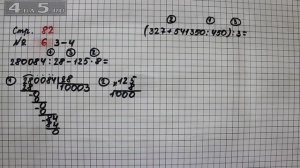 4 из 5 ми
Стр. 82
№ 6 3-4
① ③ ②
280084 : 28 - 125 · 8 =
② ① ③
(327 + 541350 : 450) : 3 =
① 280084 | 28
28 | 10003
0
0
0
0
84
84
0
② × 125
8
1000